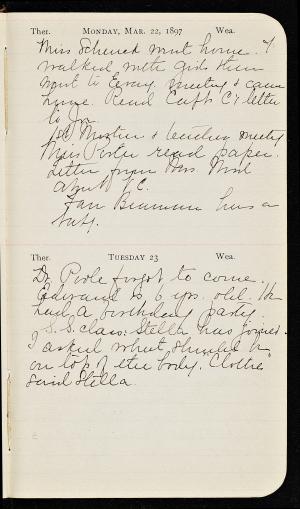 Ther. MONDAY, MAR. 22, 1897 Wea.
Miss Schenck went home. I
walked with girls then
went to Evang. meeting & came
home. Read Capt C's letter
to
1st Meeting & teachers meeting
Miss Porter read paper.
Letter from Mrs.
about
has a
baby.
Ther. TUESDAY 23 Wea.
Dr Poole forgot to come.
Edward is 6 yrs. old. He
had a birthday party.
S. S. class: Stella has joined.
I asked what should be
on top of the body. "Clothes"
said Stella.